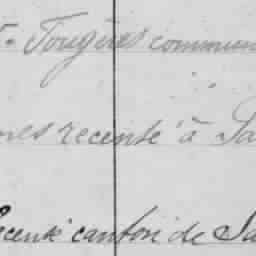 Fougères commun
nes recensé à Sa
ecensé canton de Sa